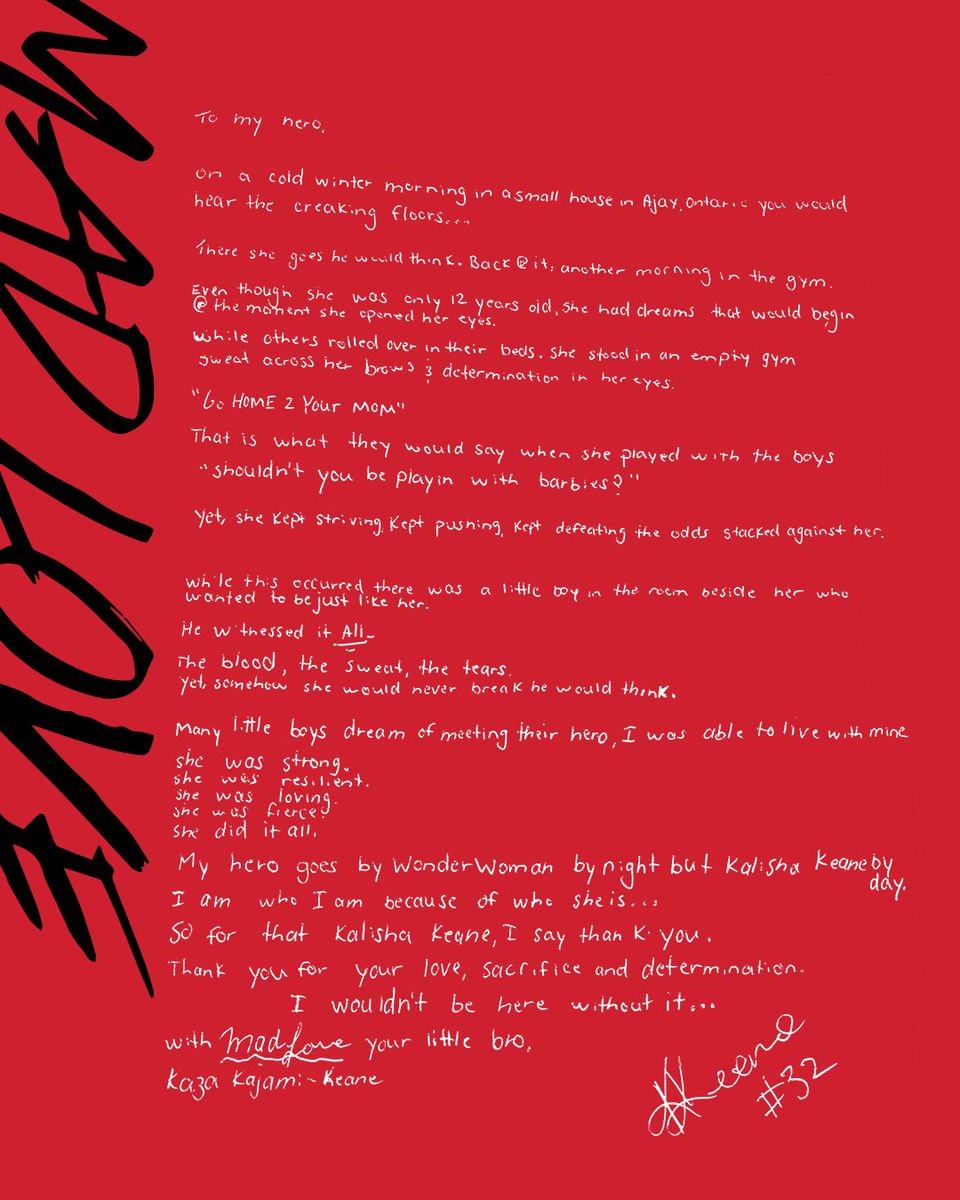 MAD LOVE
To my hero.
on a cold winter morning in a small house in Ajay, Ontario you would
hear the creaking floors...
There she goes he would think. Back @ it, another morning in the gym.
Even though she was only 12 years old, she had dreams that would begin
@ the moment she opened her eyes.
While others rolled over in their beds. she stood in an empty gym
sweat across her brows & determination in her eyes.
"Go HOME 2 Your MOM"
That is what they would say when she played with the boys
"shouldn't you be playin with barbies?"
Yet, she kept striving, kept pushing, kept defeating the odds stacked against her.
while this occurred there was a little boy in the room beside her who
wanted to be just like her.
He witnessed it All-
The blood, the sweat, the tears.
Yet, somehow she would never break he would think.
Many little boys dream of meeting their hero, I was able to live with mine
she was strong.
she was resilient.
she was loving.
she was fierce.
She did it all.
My hero goes by WonderWoman by night but Kalisha Keane by
day.
I am who I am because of who she is...
So for that Kalisha Keane, I say thank you.
Thank you for your love, sacrifice and determination.
I wouldn't be here without it...
with Mad Love your little bro,
Kaza Kajami-Keane
KKeane
#32